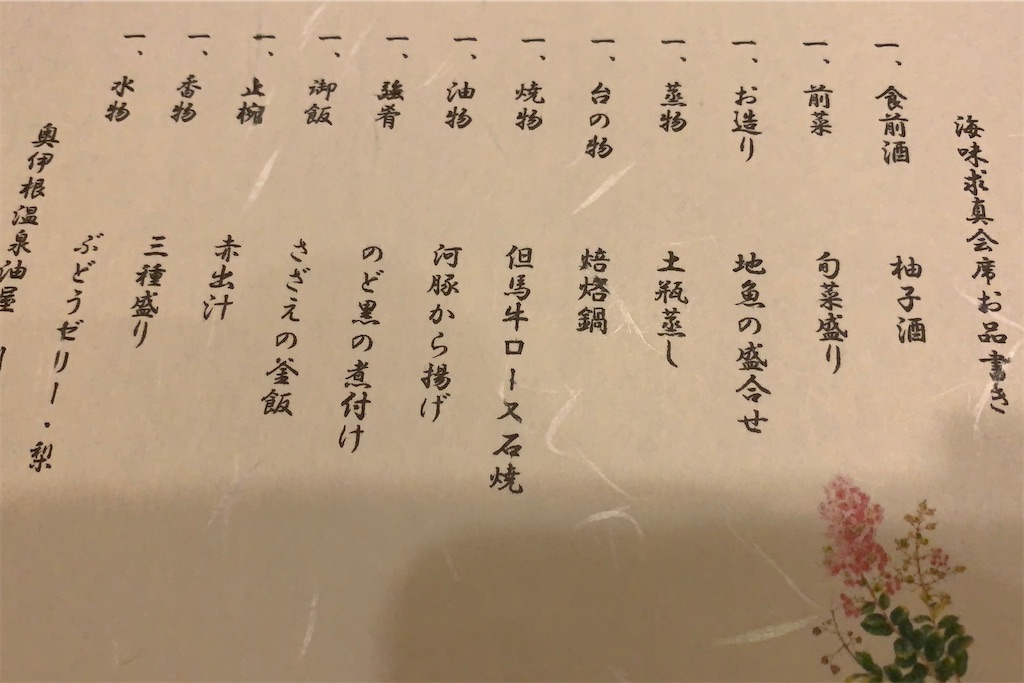 海味求真会席お品書き
一、食前酒　柚子酒
一、前菜　旬菜盛り
一、お造り　地魚の盛合せ
一、蒸物　土瓶蒸し
一、台の物　焙烙鍋
一、焼物　但馬牛ロース石焼
一、油物　河豚から揚げ
一、強肴　のど黒の煮付け
一、御飯　さざえの釜飯
一、止椀　赤出汁
一、香物　三種盛り
一、水物　ぶどうゼリー・梨
奥伊根温泉油屋